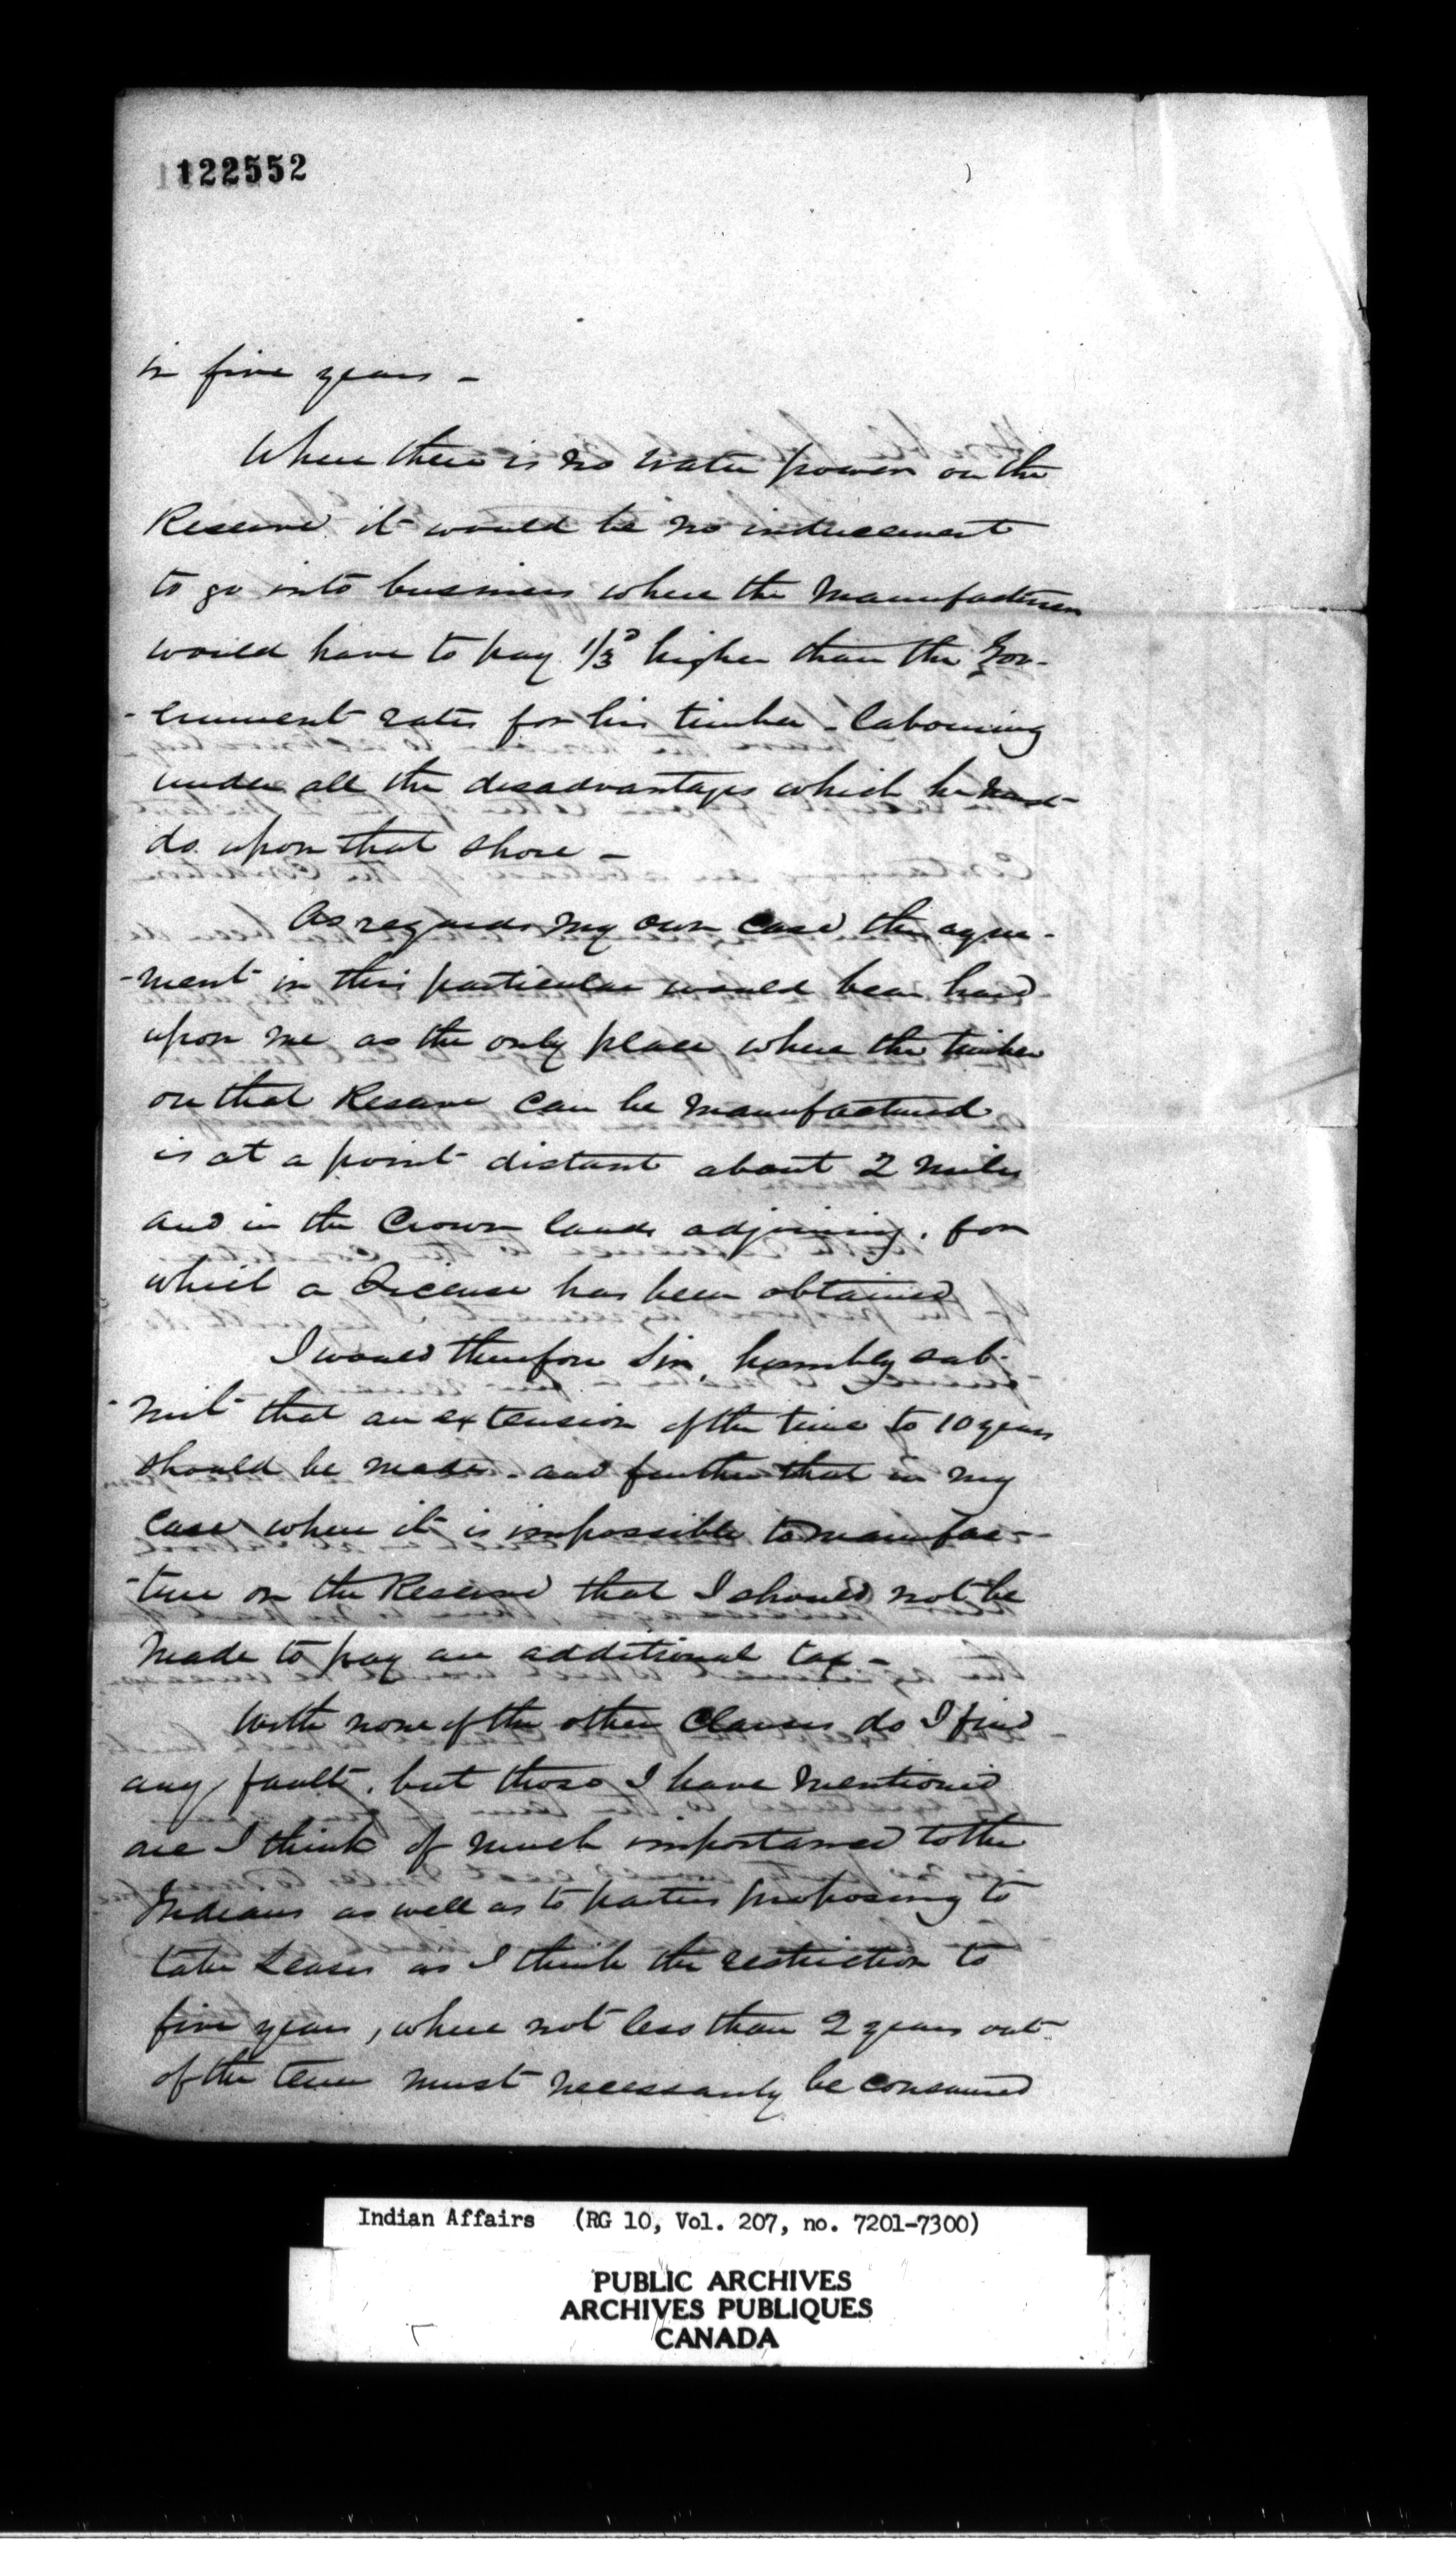 122552
in five years -
Where there is no water power on the
Reserve it would be no inducement
to go into business where the Manufacturer
would have to pay 1/3d higher than the Gov-
-ernment rates for his timber - labouring
under all the disadvantages which he must
do upon that shore -
As regards my own case the agree-
-ment in this particular would bear hard
upon me as the only place where the timber
on that Reserve can be manufactured
is at a point distant about 2 miles
and in the Crown lands adjoining. for
which a License has been obtained
I would therefore Sir, humbly sub-
-mit that an extension of the time to 10 years
should be made - and further that in my
case where it is impossible to manufac-
-ture on the Reserve that I should not be
made to pay an additional tax -
With none of the other Clauses do I find
any fault, but those I have mentioned
are I think of much importance to the
Indians as well as to parties proposing to
take Leases as I think the restriction to
five years, where not less than 2 years out
of the term must necessarily be consumed
Indian Affairs (RG 10, Vol. 207, no. 7201-7300)
PUBLIC ARCHIVES
ARCHIVES PUBLIQUES
CANADA